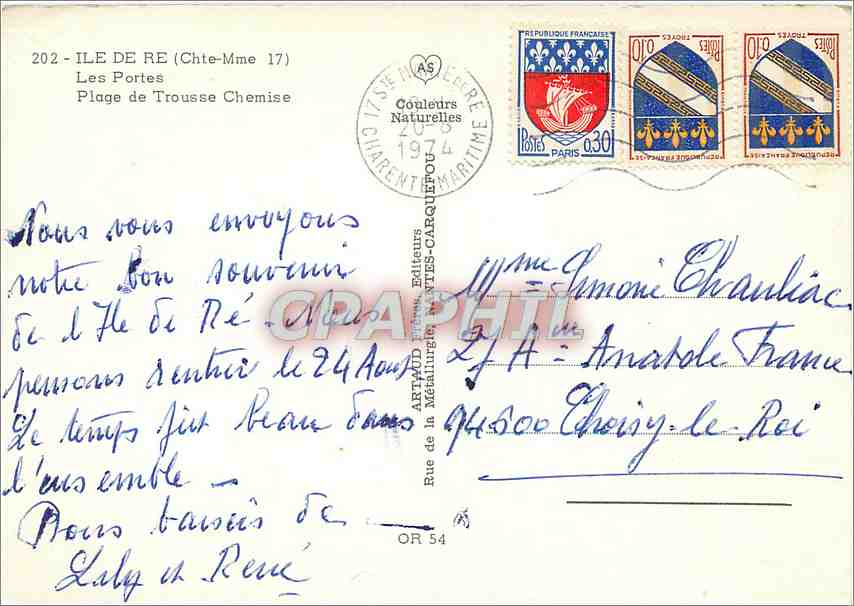 202 - ILE DE RE (Chte-Mme 17)
Les Portes
Plage de Trousse Chemise
AS
Couleurs
Naturelles
17 Ste
RE
1974
CHARENTE-MARITIME
REPUBLIQUE FRANÇAISE
POSTES
0.30
PARIS
TROYES
POSTES
0.10
REPUBLIQUE FRANÇAISE
TROYES
POSTES
0.10
REPUBLIQUE FRANÇAISE
Nous vous envoyons
notre bon souvenir
de l'Ile de Ré - Nous
pensons rentrer le 24 Aout
Le temps fut beau dans
l'ensemble -
Bons baisers de
Lily et René
ARTAUD Frères, Editeurs
Rue de la Métallurgie, NANTES-CARQUEFOU
Mme Simone Chauliac
Anatole France
94600 Choisy-le-Roi
OR 54
CPAPHIL